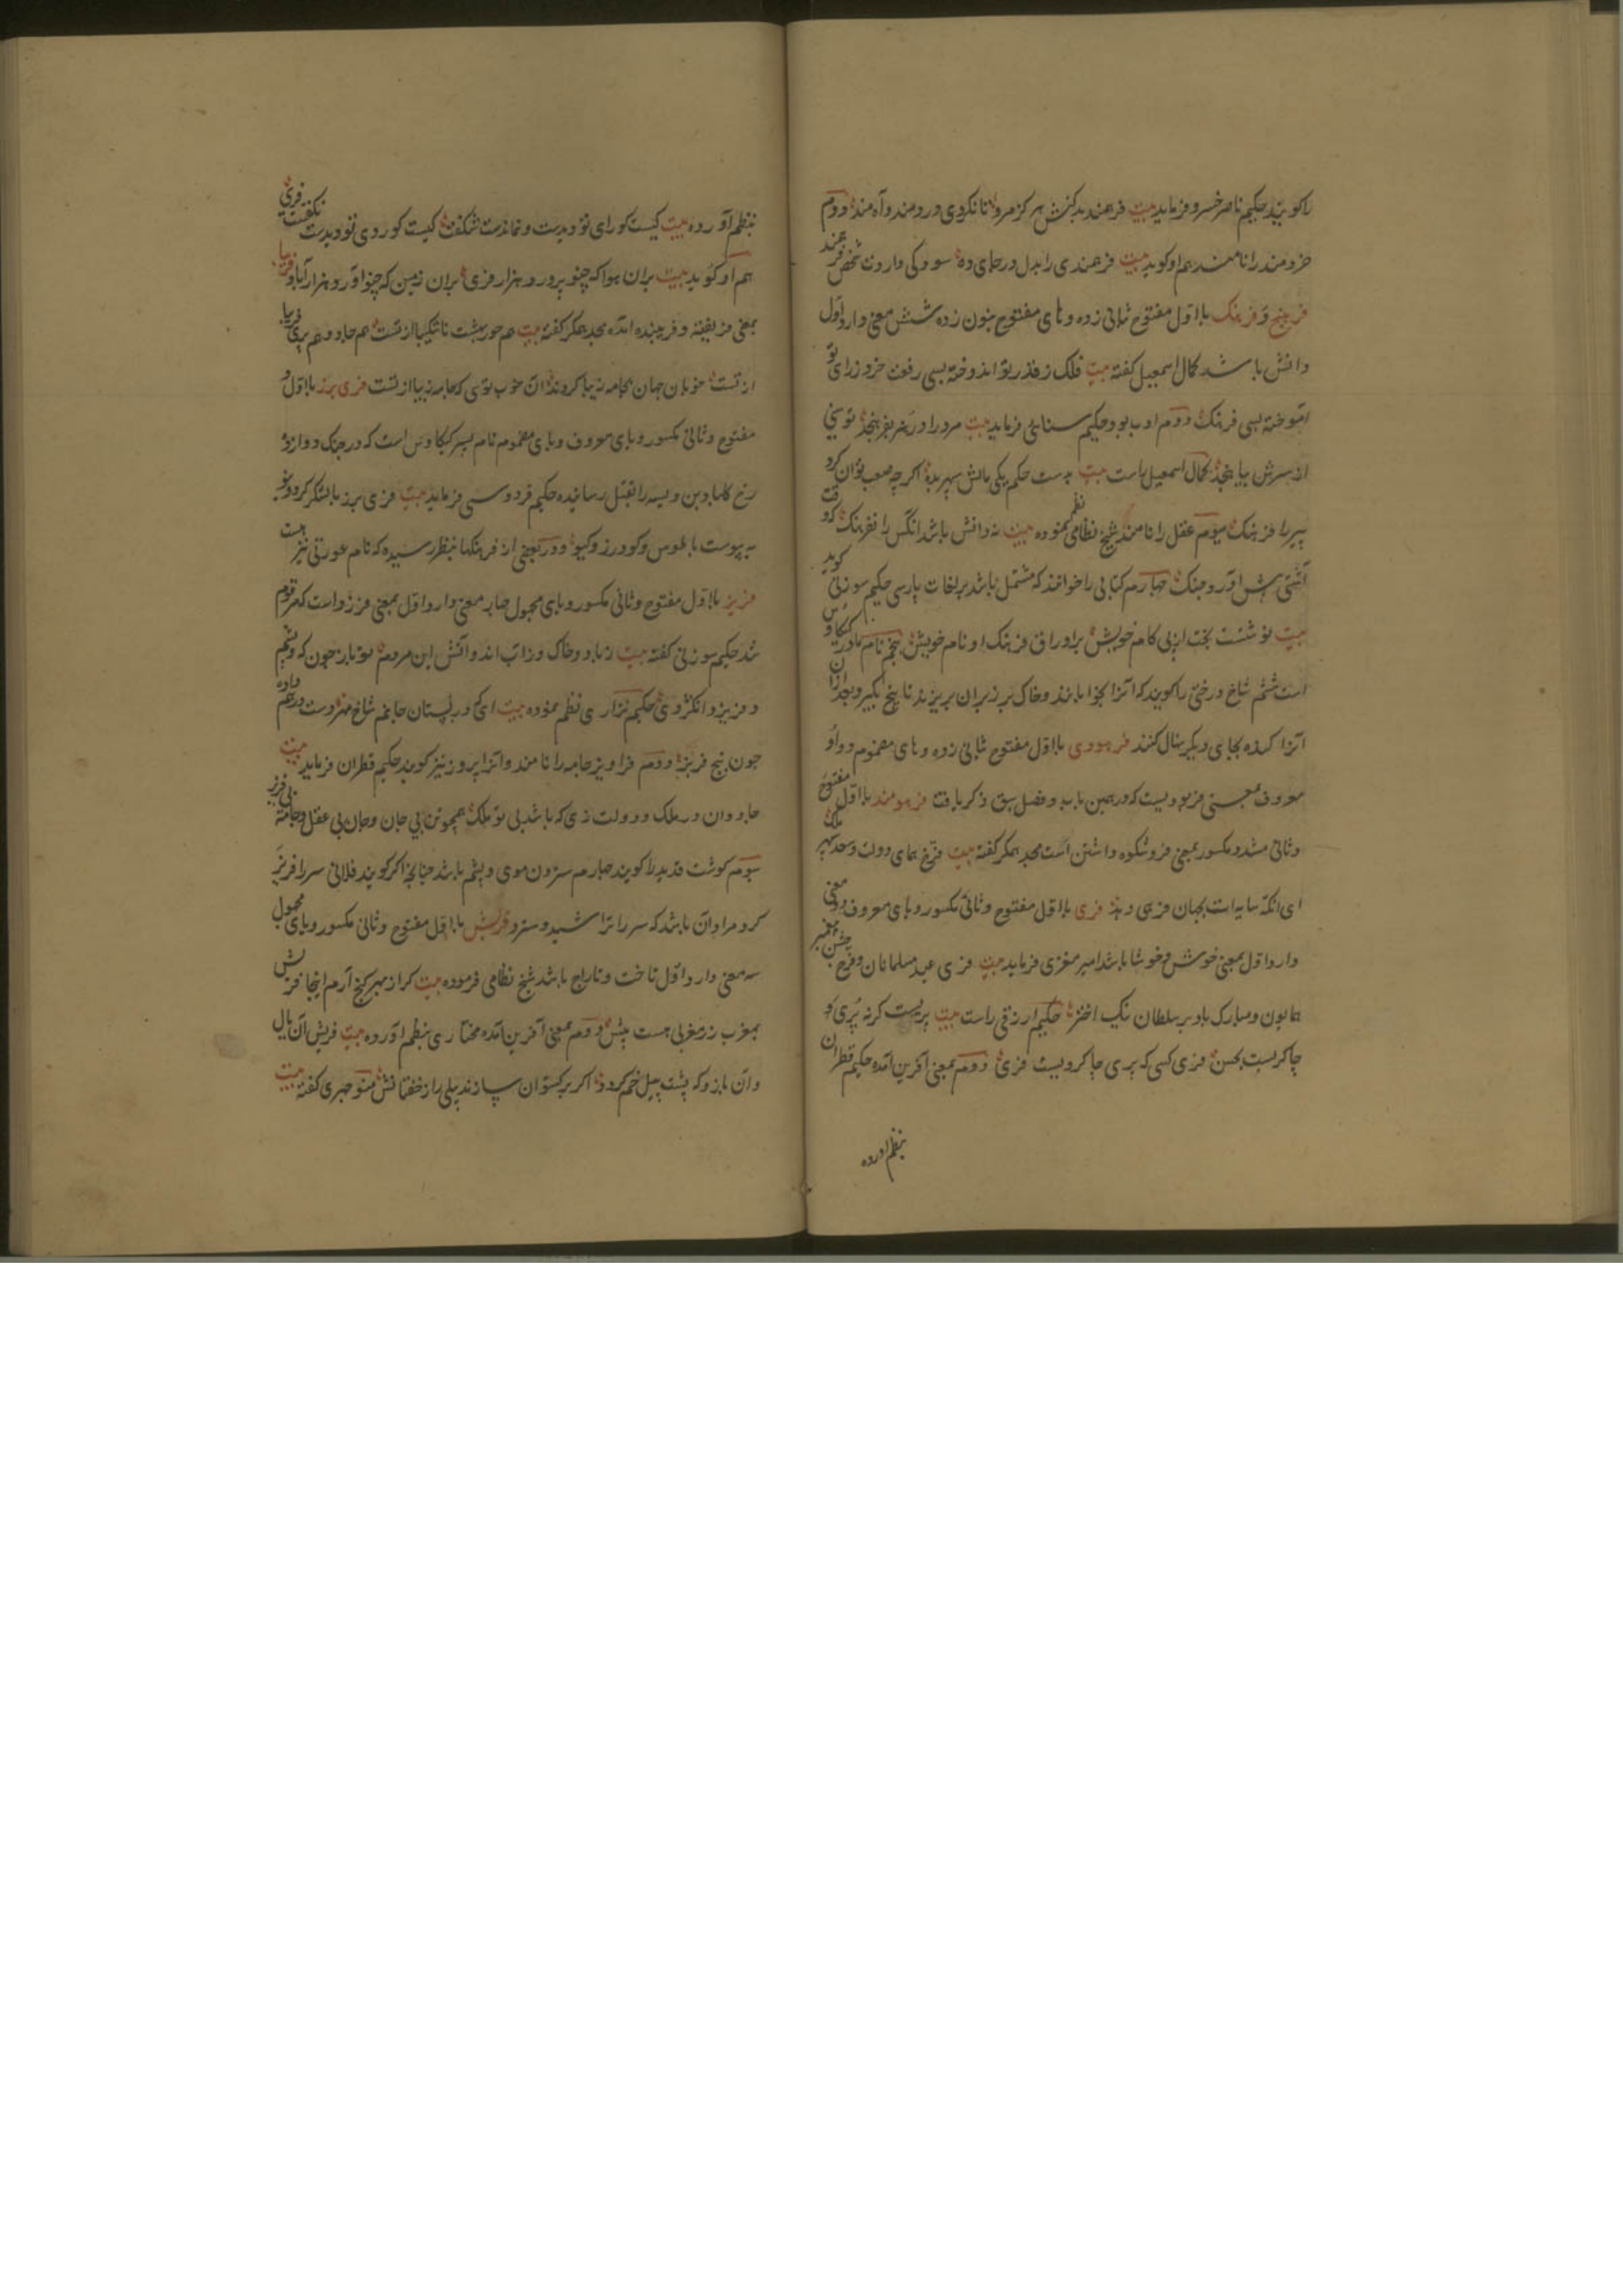 را کویند حکیم ناصر خسرو فرماید بیت فرهمند بدکنش هرکز مرو تا نکردی دردمند و آه مند دوم
خردمند را نامند هم او کوید بیت فرهمندی را بدل در جای ده سود کی دارت شخص فرهمند
فرهنج و فرهنک با اول مفتوح ثانی زده و های مفتوح بنون زده شش معنی دارد اول
دانش باشد کمال اسمعیل کفته بیت فلک ز قدر تو اندوخته بسی رفعت خرد ز رای تو
آموخته بسی فرهنک دوم ادب بود حکیم سنایی فرماید بیت مرد را در هنر بفرهنجد توسنی
از سرش بیاهنجد کمال اسمعیل راست بیت بدست حکم یکی مالش سپهر بده اکر چه صعب توان کرد
پیر را فرهنک سیوم عقل را نامند شیخ نظامی نظم نموده بیت نه دانش باشد آنکس را نفرهنک که وقت
آشتی پیش آورد جنک چهارم کتابی را خوانند که مشتمل باشد بر لغات پارسی حکیم سوزنی کوید
بیت نوشتت بخت از پی کام خویش بر اوراق فرهنک او نام خویش پنجم نام مادر کیکاوس
است ششم شاخ درختی را کویند که آنرا بخوابانند و خاک بر زبر آن بریزند تا بیخ بکیرد و بعد از آن
آنرا کنده بجای دیکر نهال کنند فرهودی با اول مفتوح ثانی زده و های مضموم و واو
معروف بمعنی فرهودیست که در همین باب و فصل سبق ذکر یافت فرهومند با اول مفتوح
و ثانی مشدد مکسور بمعنی فر و شکوه داشتن است مجد همکر کفته بیت فرخ همای دولت و سعد سپهر ملک
ای آنکه سایه ات بجهان فرهی دهد فری با اول مفتوح و ثانی مکسور و یای معروف دو معنی
دارد اول بمعنی خوش و خوشا باشد امیر معزی فرماید بیت فری عید مسلمانان و فرخ جشن پیغمبر
همایون و مبارک باد بر سلطان نیک اختر حکیم ازرقی راست بیت پریست کرنه پری کو
چاکریست بحسن فری کسی که پری چاکرویست فری دوم بمعنی آفرین آمده حکیم قطران
بنظم آورده
بنظم آورده بیت کیست کو رای تو دیدست و نماندست شکفت کیست کو روی تو دیدست نکفتست فری
هم او کوید بیت بران هوا که چنو پرورد هزار فری بران زمین که چنو آورد هزار آباد فریبا
بمعنی فریفته و فریبنده آمده مجد همکر کفته بیت هم حور بهشت ناشکیبا از تست هم جادو و هم پری فریبا
از تست خوبان جهان بجامه زیبا کردند آن خوب توی که جامه زیبا از تست فری برز با اول
مفتوح و ثانی مکسور و یای معروف و بای مضموم نام پسر کیکاوس است که در جنک دوازده
رخ کلباد بن ویسه را بقتل رسانیده حکیم فردوسی فرماید بیت فری برز با لشکر کرد نیو
به پیوست با طوس و کودرز و کیو و در بعضی از فرهنکها بنظر رسیده که نام عورتی نیز هست
فریز با اول مفتوح و ثانی مکسور و یای مجهول چهار معنی دارد اول بمعنی فرزد است که مرقوم
شد حکیم سوزنی کفته بیت ز باد و خاک وز آب اند و آتش این مردم نه باز چون که و پشم
و فریز و انکژدی حکیم نزاری نظم نموده بیت ای که در پستان جانم شاخ مهر دست در هم داده
چون بیخ فریز دوم فراویز جامه را نامند و آنرا پروز نیز کویند حکیم قطران فرماید بیت
جاودان در ملک و دولت زی که باشد بی تو ملک همچو تن بی جان و جان بی عقل و جامه بی فریز
سیوم کوشت قدید را کویند چهارم ستردن موی و پشم باشد چنانچه اکر کویند فلانی سر را فریز
کرد مراد آن باشد که سر را تراشید و سترد فریش با اول مفتوح و ثانی مکسور و یای مجهول
سه معنی دارد اول تاخت و تاراج باشد شیخ نظامی فرموده بیت کر از بهر کنج آرم اینجا فریش
بمغرب زر مغربی هست بیش دوم بمعنی آفرین آمده مختاری بنظم آورده بیت فریش آن یال
وآن بازو که پشت پیل خم کردد اکر برکستوان سازند پیلی را ز خفتانش منوچهری کفته بیت